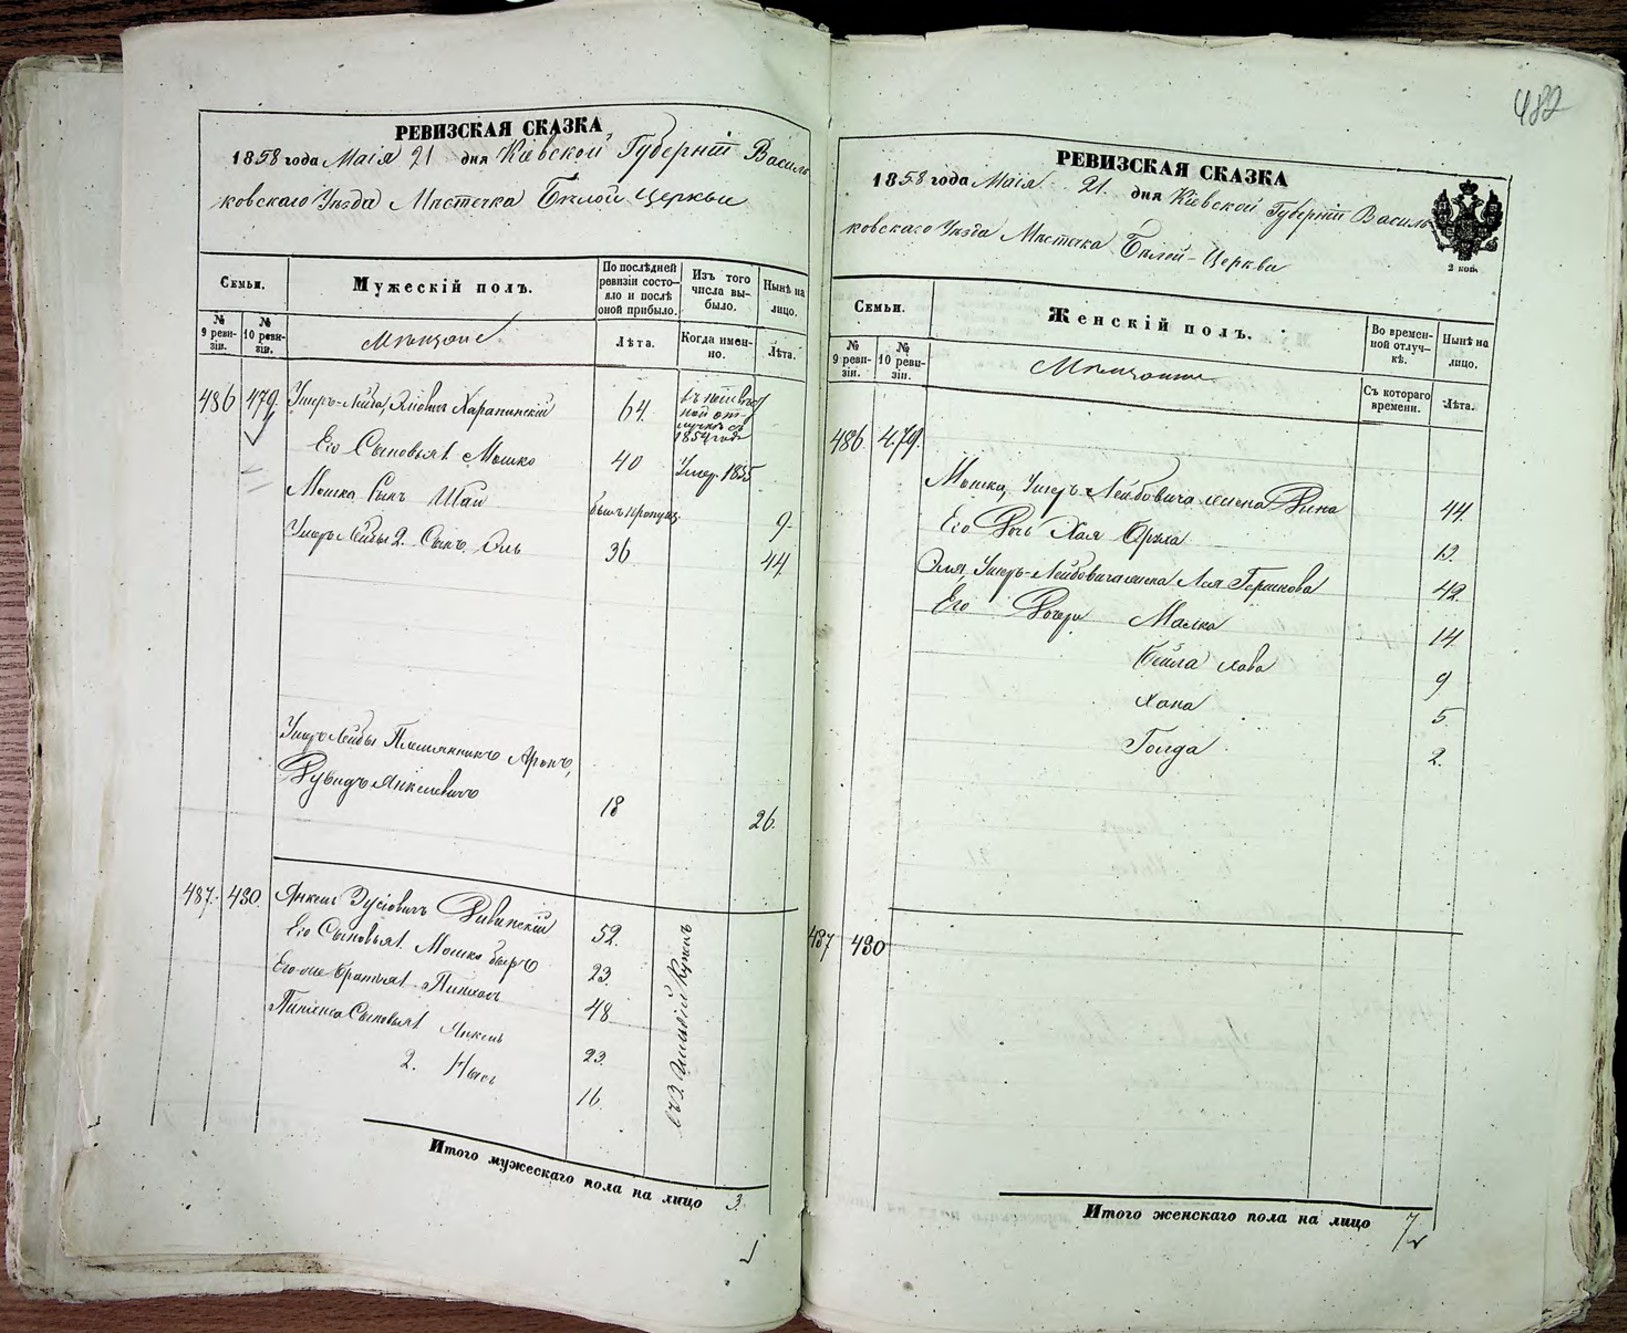 482
РЕВИЗСКАЯ СКАЗКА
1858 года Маія 21 дня Кіевской Губерніи Василь
ковскаго Уѣзда Мѣстечка Бѣлой Церкви
Семьи.
Мужескій полъ.
По послѣдней ревизіи состояло и послѣ оной прибыло.
Изъ того числа выбыло.
Нынѣ на лицо.
№ 9 ревизіи.
№ 10 ревизіи.
Мѣщане
Лѣта.
Когда именно.
Лѣта.
486 479 Умеръ-Лейба 64
въ
ной от-
лучкѣ съ
1854 года
Его Сыновья 1. Мошко 40 Умер. 1855
Мошка Сынъ Шая былъ пропущ. 9
2. Сынъ Эль 36 44
Лейбы Племянникъ Аронъ,
Дувидъ Янкелевичъ 18 26.
487. 480. Янкель Зусіовичъ 52.
Его Сыновья 1. Мошко Беръ 23.
Его же братья 1. Пинхасъ 48
Пинхаса Сыновья 1 Янкель 23.
2. 16.
Купецъ
Итого мужескаго пола на лицо 3.
РЕВИЗСКАЯ СКАЗКА
1858 года Маія 21. дня Кіевской Губерніи Василь
ковскаго Уѣзда Мѣстечка Бѣлой-Церкви
2 коп.
Семьи.
Женскій полъ.
Во временной отлучкѣ.
Нынѣ на лицо.
№ 9 ревизіи.
№ 10 ревизіи.
Мѣщанки
Съ котораго времени.
Лѣта.
486 479.
Мошка, Лейбовича жена 44.
Его Дочь Хая 13.
Эля, Лейбовича жена Лея Гершкова 42.
Его Дочери Малка 14
Бейла Хава 9
Хана 5.
Голда 2.
487 480
Итого женскаго пола на лицо 7